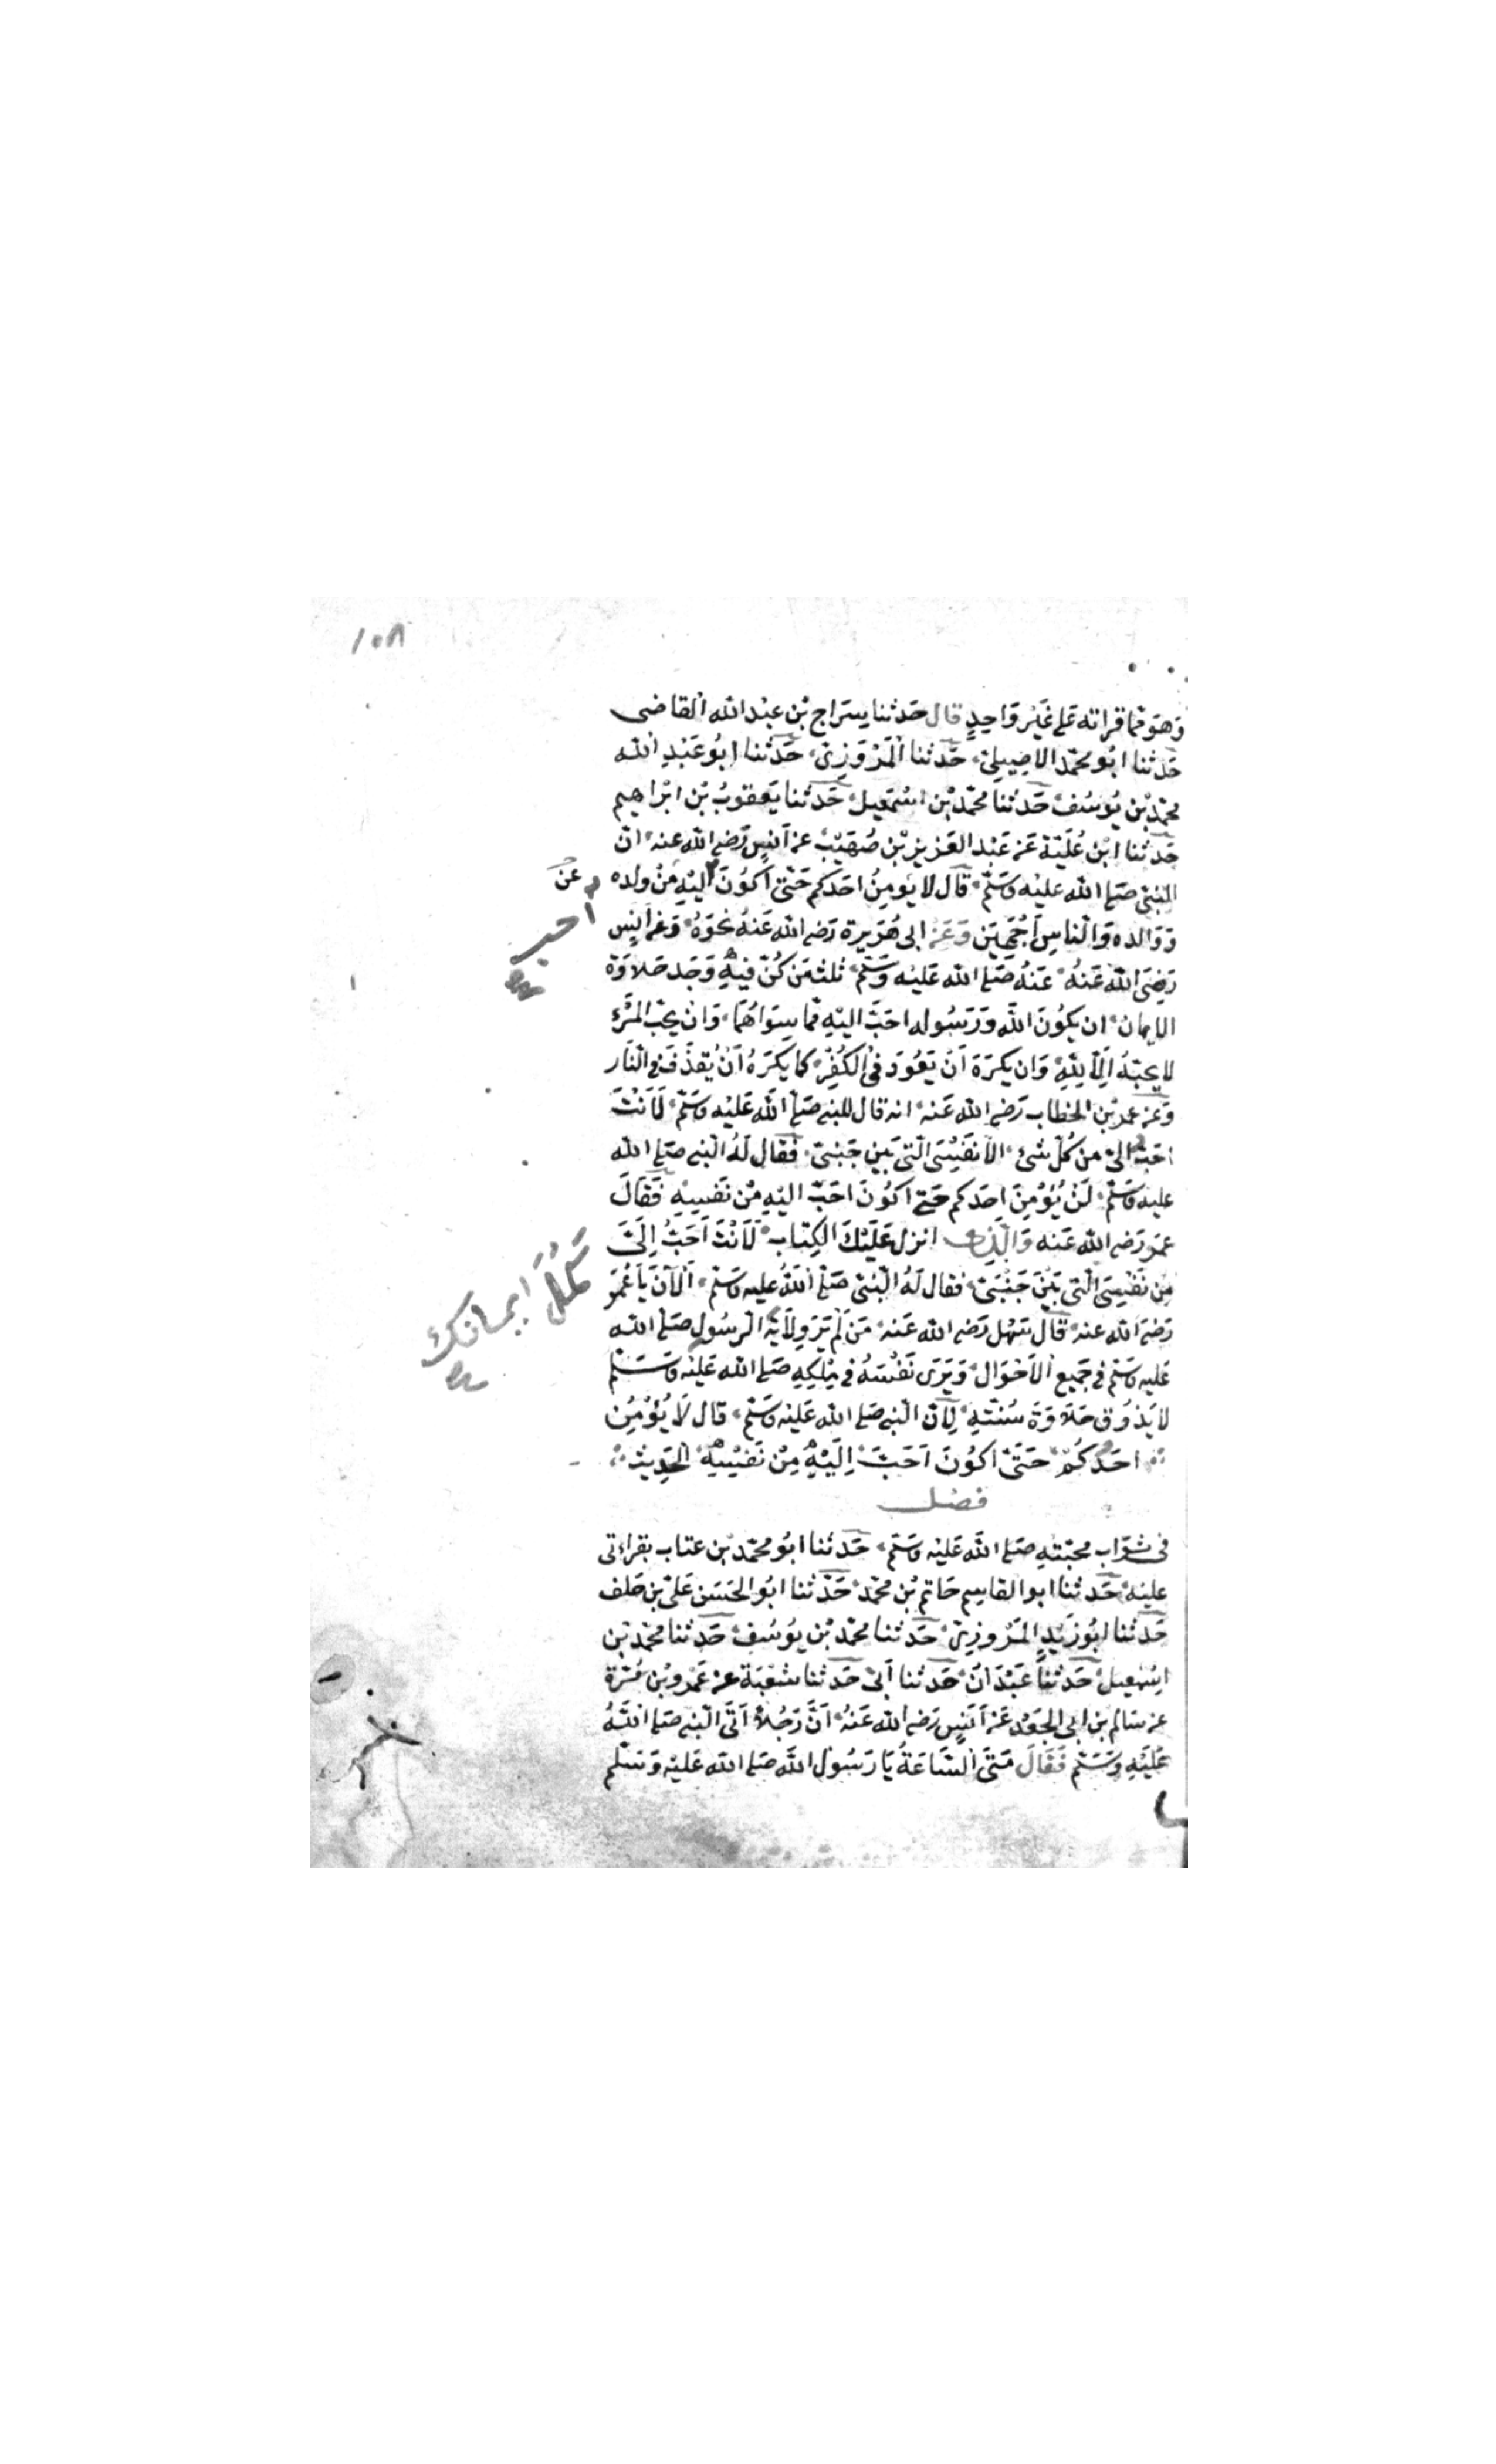 ١٥٨
وَهوَ مما قراته عَلى غَيْر وَاحِدٍ قال حَدثنا سِرَاج بْن عبْد الله القاضى
حَدثنا ابُو محمّد الاصِيلِىّ حَدثنا الْمَرْوَزِىّ حَدّثنا ابُو عَبْدِ الله
محمّد بْن يُوسُف حَدثنا محمّد بْن اسْمٰعيل حَدثنا يَعقوبُ بْن ابْراهيم
حَدثنا ابْن عُلَيّة عَن عَبْد العَزيز بْن صُهَيْب عن اَنسٍ رَضى الله عنه انّ
النبىّ صَلى الله عليْه وَسَلّم قال لا يُومِنُ احَدكم حَتّى اَكُونَ اليْهِ مِنْ ولده
عن
احب
وَوَالده وَالناسِ اَجْمَعِيَن وَعَنْ ابى هُرَيرة رَضى الله عَنهُ نحْوَهُ وَعَن اَنسٍ
رَضِىَ الله عَنهُ عَنهُ صَلّى الله عَليْه وَسَلّم ثلث مَن كُنّ فيهِ وَجَد حَلاوَة
الايمان ان يكُونَ اللهُ وَرَسُوله احَبّ اليْهِ مما سِوَاهُمَا وَان يحبّ المَرْءَ
لا يحِبّهُ اِلّا لِلّهِ وَان يكرَهَ اَنْ يَعُودَ فى الكُفْرِ كما يَكرَهُ اَنْ يُقذَفَ فى النّار
وَعَن عمر بْن الخطاب رَضى الله عَنه انه قال للنبى صَلّى الله عَليْه وَسَلّم لَاَنْتَ
احَبّ الىّ من كُلّ شىْء الّا نَفْسِىَ الّتى بَيْن جَنْبىّ فقال لَهُ النّبى صَلى الله
عليه وَسَلّم لَنْ يُؤْمِنَ احَدكم حَتى اكُونَ احَبّ اليْهِ مِنْ نَفسِهِ فَقَالَ
عمَر رَضى الله عَنه وَالّذِى انزل عَلَيْكَ الكِتابَ لَاَنْتَ اَحَبُّ اِلَىَّ
مِن نَفْسِىَ الّتى بَيْنَ جَنْبَىّ فقال لَهُ النّبىّ صَلّى اللهُ عليه وَسَلّم اَلْآنَ يَا عُمَرُ
ايمانك
رَضىَ الله عنه قال سَهْل رَضى الله عَنه مَن لَمْ يَرَ وِلَايَةَ الرسُول صَلى الله
عليه وَسَلّم فى جَميع الاَحْوَال وَيَرَى نَفْسَهُ فى مِلْكِهِ صَلى الله عَليْه وَسَلّم
لا يَذُوق حَلاوَةَ سُنّتهِ لِاَنّ النّبى صَلى الله عَليْه وَسَلّم قال لَا يُؤْمِنُ
احَدُكُمْ حَتّى اكُونَ اَحَبَّ اِلَيْهِ مِنْ نَفْسِهِ الحَدِيثَ
فصل
فى ثوَابِ محبّتهِ صَلى الله عَليْه وَسَلّم حَدثنا ابُو محمّد بْن عتاب بقراءتى
عليْه حَدثنا ابو القاسِم حَاتم بْن محمّد حَدّثنا ابُو الحَسَن عَلىّ بْن خلف
حَدثنا ابُو زَيْدٍ المَرْوزِىّ حَدثنا محمّد بْن يوسُف حَدثنا محمّد بْن
اسْمٰعيل حَدثنا عَبْدَانُ حَدثنا اَبى حَدثنا شعْبَة عن عَمْرو بْن مُرّة
عن سَالم بْن ابى الجَعْد عَن اَنسٍ رَضى الله عَنْهُ اَنَّ رَجُلًا اَتَى النّبى صَلى اللهُ
عَلَيْهِ وَسَلّم فَقَالَ مَتَى السَّاعَةُ يَا رَسُولَ اللهِ صَلى الله عَليْه وَسَلّم